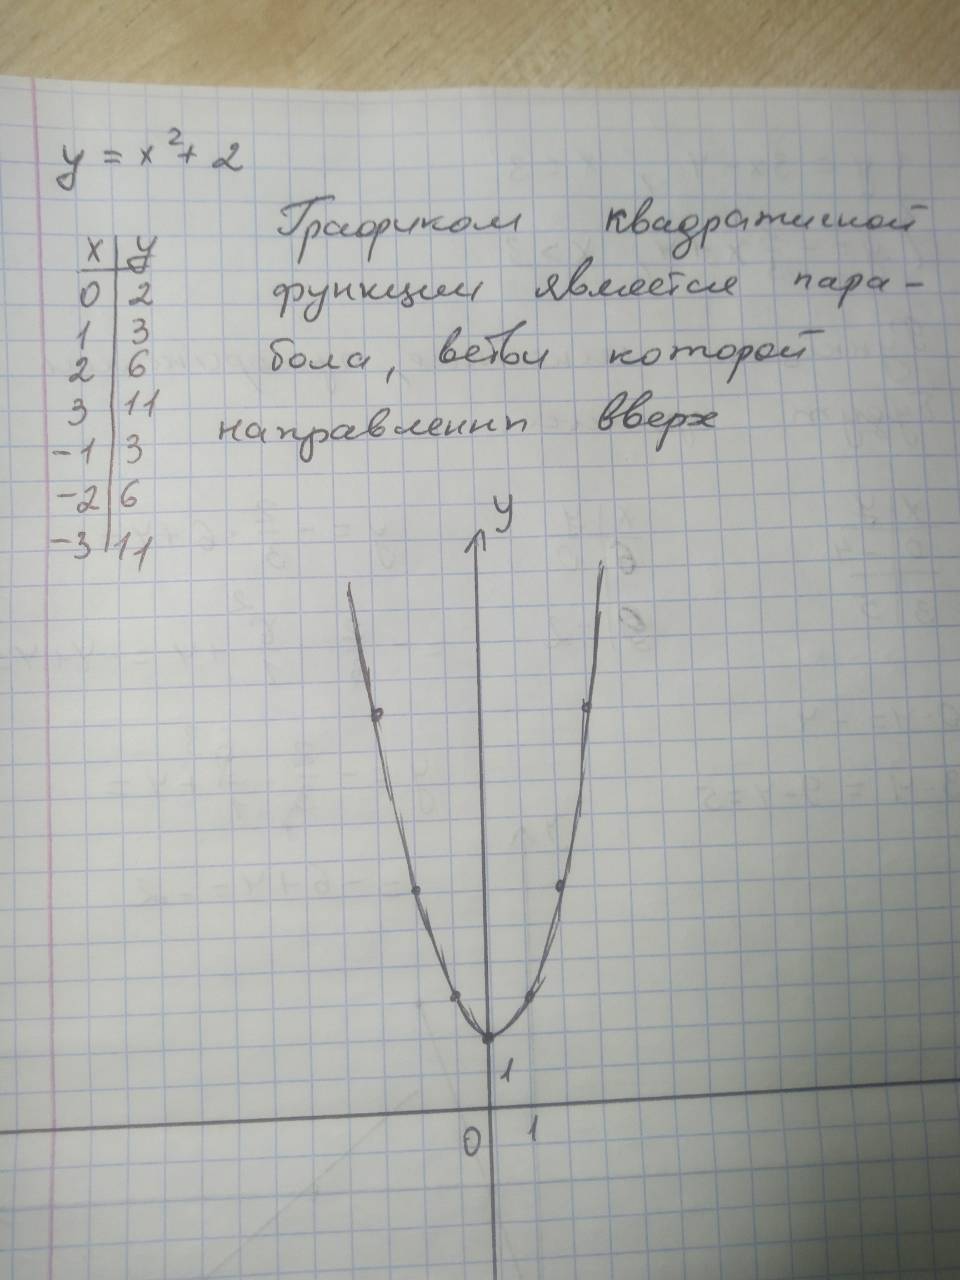 y = x² + 2
x | y
0 | 2
1 | 3
2 | 6
3 | 11
-1 | 3
-2 | 6
-3 | 11
Графиком квадратичной
функции является пара-
бола, ветви которой
направлены вверх
y
1
0
1